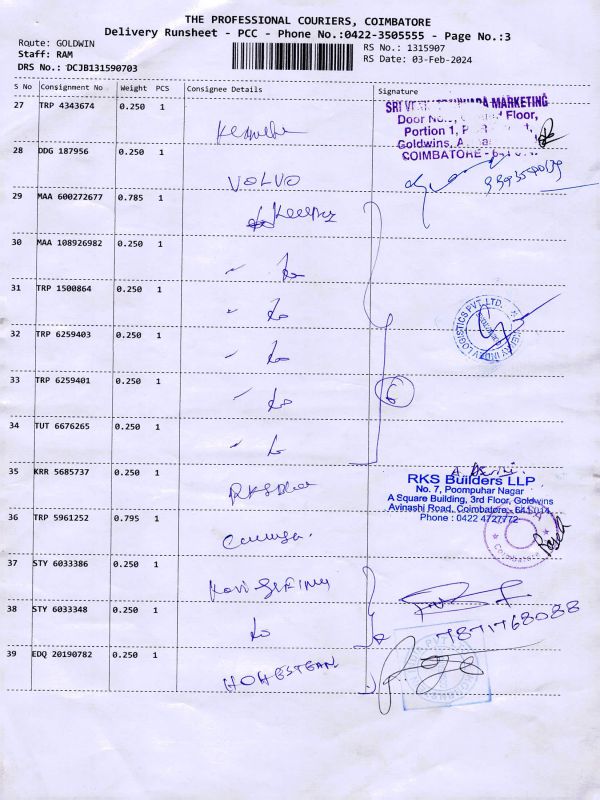 THE PROFESSIONAL COURIERS, COIMBATORE
Delivery Runsheet - PCC - Phone No.:0422-3505555 - Page No.:3
Route: GOLDWIN
RS No.: 1315907
Staff: RAM
RS Date: 03-Feb-2024
DRS No.: DCJB131590703
S No Consignment No Weight PCS Consignee Details Signature
27 TRP 4343674 0.250 1
SRI MARKETING
Door Floor,
Portion 1,
Goldwins,
COIMBATORE -
28 DDG 187956 0.250 1 VOLVO
29 MAA 600272677 0.785 1
30 MAA 108926982 0.250 1
31 TRP 1500864 0.250 1
LOGISTICS PVT. LTD.
32 TRP 6259403 0.250 1
33 TRP 6259401 0.250 1
6
34 TUT 6676265 0.250 1
35 KRR 5685737 0.250 1
RKS Builders LLP
No. 7, Poompuhar Nagar
A Square Building, 3rd Floor, Goldwins
Avinashi Road, Coimbatore - 641 014
Phone : 0422 4727772
36 TRP 5961252 0.795 1
Coimbatore
37 STY 6033386 0.250 1
38 STY 6033348 0.250 1
7871768088
39 EDQ 20190782 0.250 1